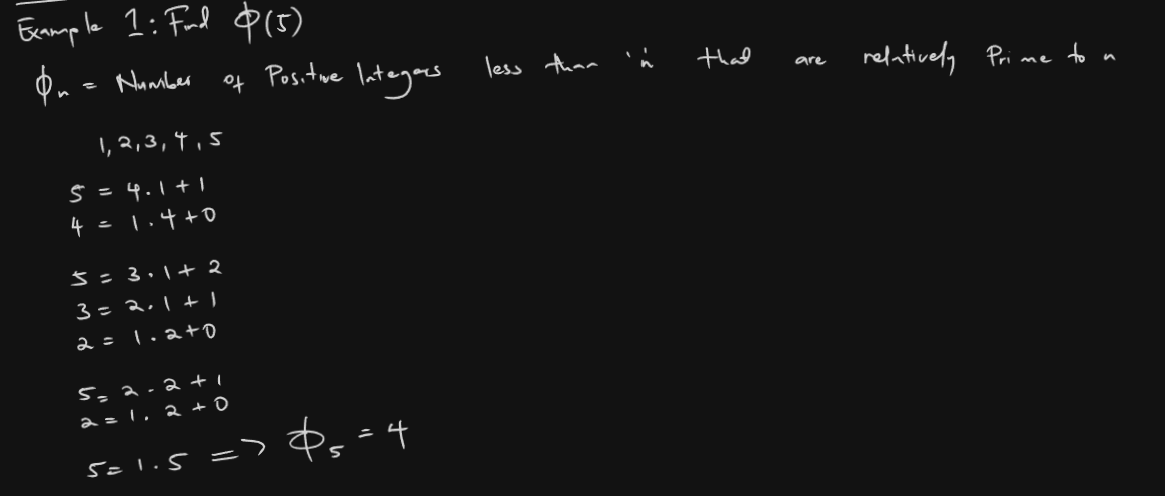 Example 1: Find ϕ(5)
ϕn = Number of Positive Integers less than 'n' that are relatively Prime to n
1, 2, 3, 4, 5
5 = 4.1 + 1
4 = 1.4 + 0
5 = 3.1 + 2
3 = 2.1 + 1
2 = 1.2 + 0
5 = 2.2 + 1
2 = 1.2 + 0
5 = 1.5 => ϕ5 = 4